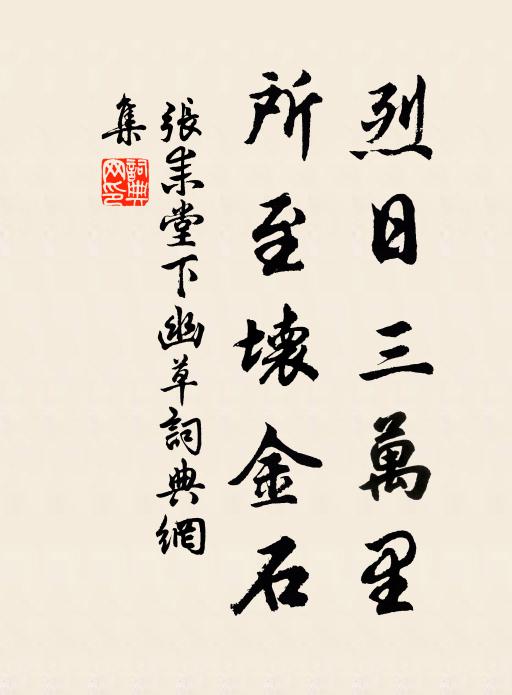 烈日三萬里
所至壞金石
張耒堂下幽草詞典網
集
詞典網印